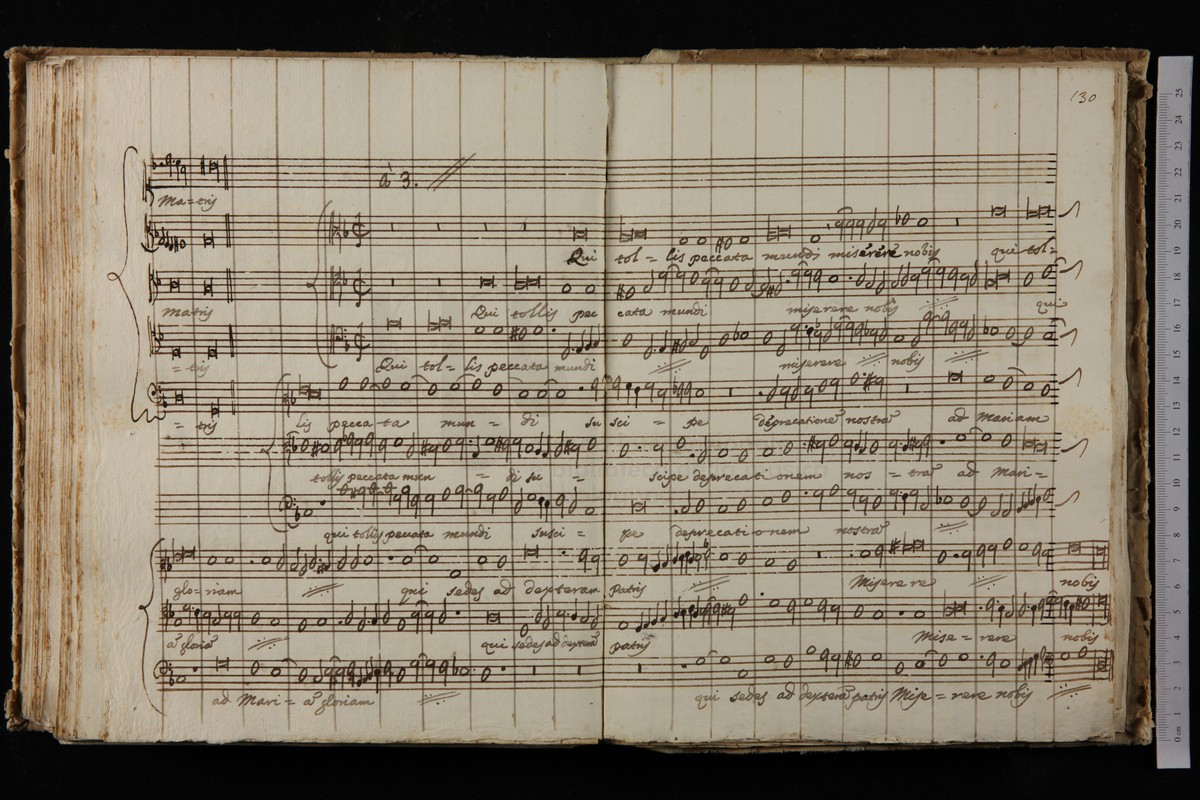 130
à 3.
Ma=tris
Qui tol = lis peccata mundi miserere nobis qui tol=
matris Qui tollis pec cata mundi miserere nobis qui
= tris Qui tol= lis peccata mundi miserere nobis
= tris lis pecca ta mun = di su sci = pe deprecationẽ nostrã ad Mariam
tollis peccata mun = di su = scipe deprecati onem nos = trã ad Mari =
qui tollis peccata mundi susci = pe deprecati o nem nostrã
glo= riam qui sedes ad dexteram patris Misere re nobis
ã gloriã qui sedes ad dexterã patris Mise = rere nobis
ad Mari = ã gloriam qui sedes ad dexterã patris Mise = rere nobis